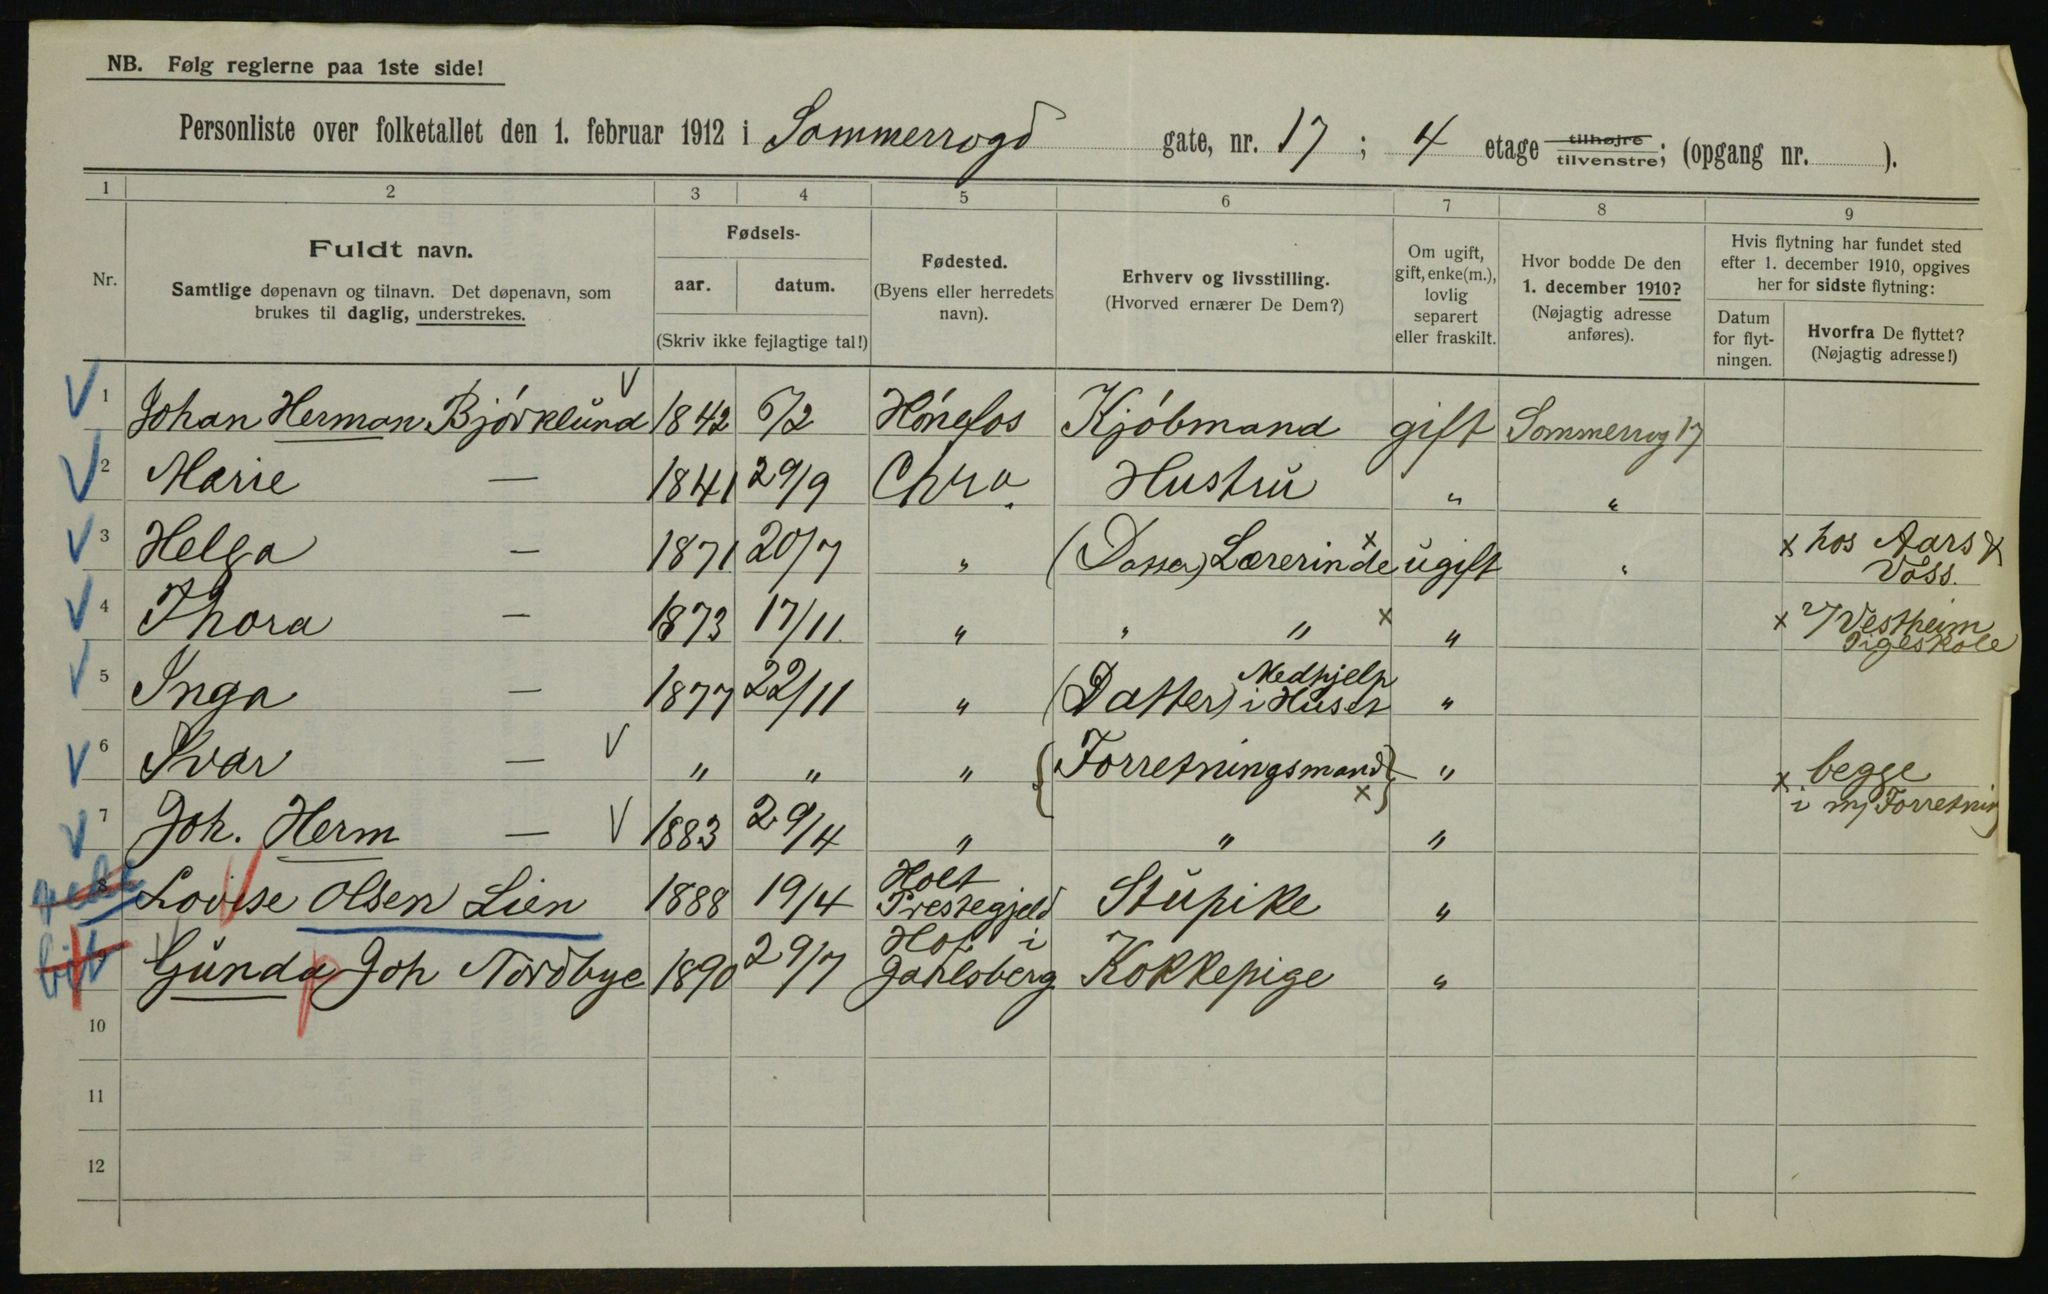 NB. Følg reglerne paa 1ste side!
Personliste over folketallet den 1. februar 1912 i Sommerrogd gate, nr. 17; 4 etage tilhøjre tilvenstre; (opgang nr. ).
1 2 3 4 5 6 7 8 9
Nr.
Fuldt navn.
Samtlige døpenavn og tilnavn. Det døpenavn, som
brukes til daglig, understrekes.
Fødsels-
aar. datum.
(Skriv ikke fejlagtige tal!)
Fødested.
(Byens eller herredets
navn).
Erhverv og livsstilling.
(Hvorved ernærer De Dem?)
Om ugift,
gift, enke(m.),
lovlig
separert
eller fraskilt.
Hvor bodde De den
1. december 1910?
(Nøjagtig adresse
anføres).
Hvis flytning har fundet sted
efter 1. december 1910, opgives
her for sidste flytning:
Datum
for flyt-
ningen.
Hvorfra De flyttet?
(Nøjagtig adresse!)
1 Johan Herman Bjórklund 1842 6/2 Hónefos Kjóbmand gift Sommerrog 17
2 Marie — 1841 29/9 Chra. Hustru " "
3 Helga — 1871 20/7 " (Datter) Lærerinde x ugift " x hos Aars &
Voss.
4 Thora — 1873 17/11 " " " x " x v/ Vestheim
Pigeskole
5 Inga — 1877 22/11 " (Datter) Medhjelp
i Huset "
6 Ivar — " " " { Forretningsmand x } " x begge
i m/ Forretnin
7 Joh. Herm — 1883 29/4 " " "
8 Lovise Olsen Lien 1888 19/4 Holt
Prestegjeld Stupike "
Gunda Joh Nordbye 1890 29/7 Hof i
Jarlsberg Kokkepige "
10
11
12